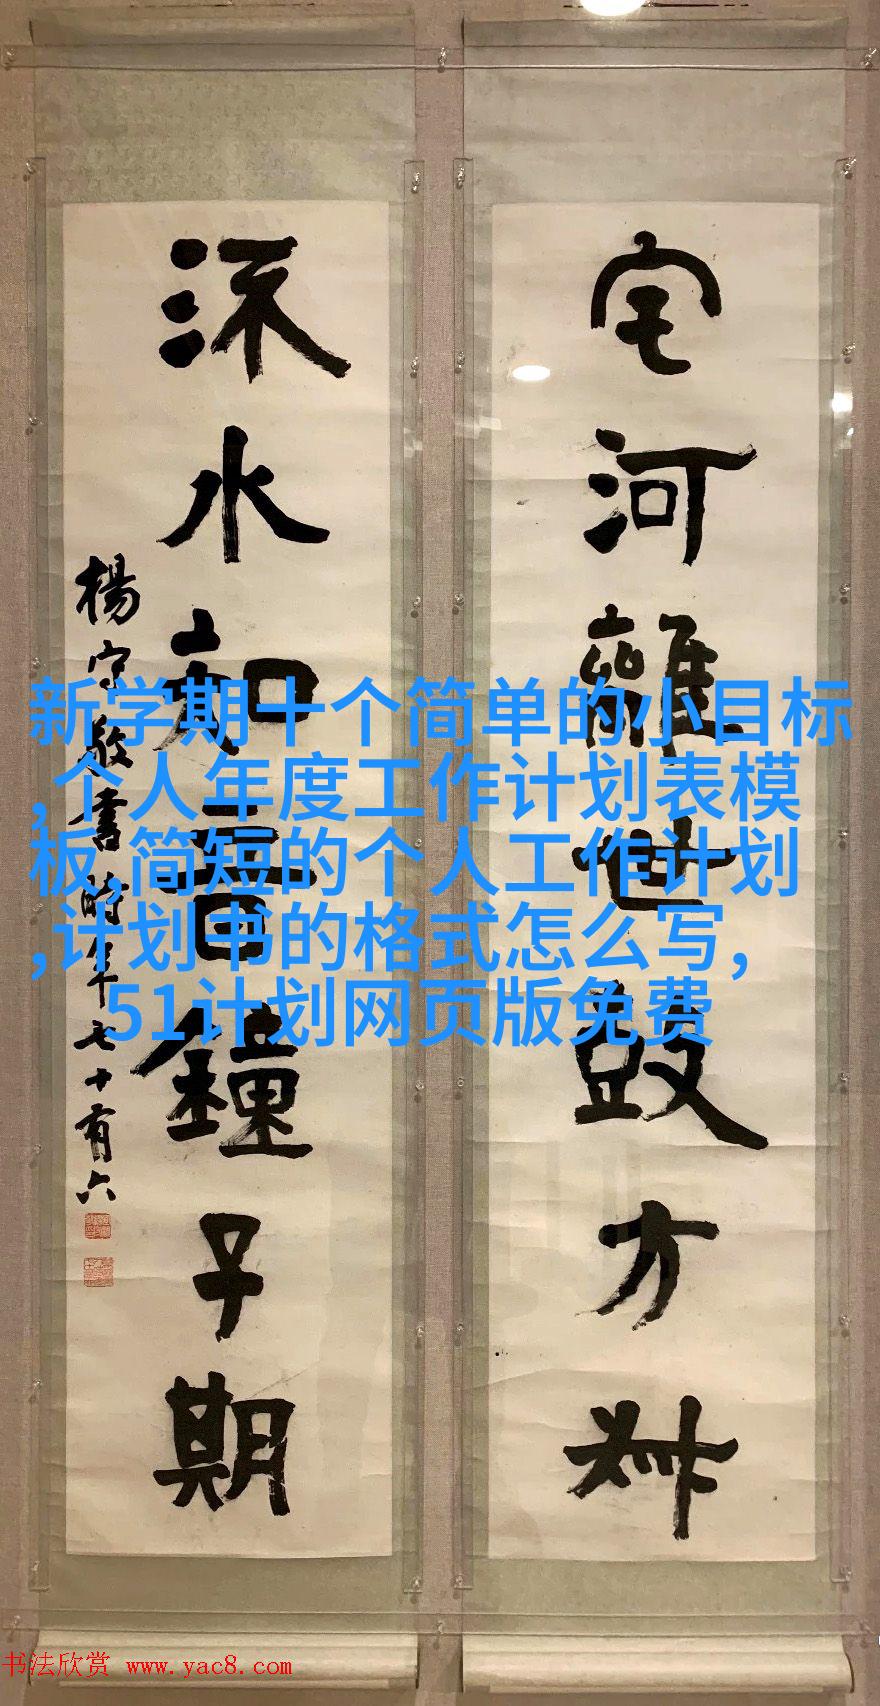 宅河離世鼓方叔
流水知音鐘子期
楊守敬書時年七十有六
新学期十个简单的小目标
,个人年度工作计划表模
板,简短的个人工作计划
,计划书的格式怎么写，
51计划网页版免费
书法欣赏 www.yac8.com